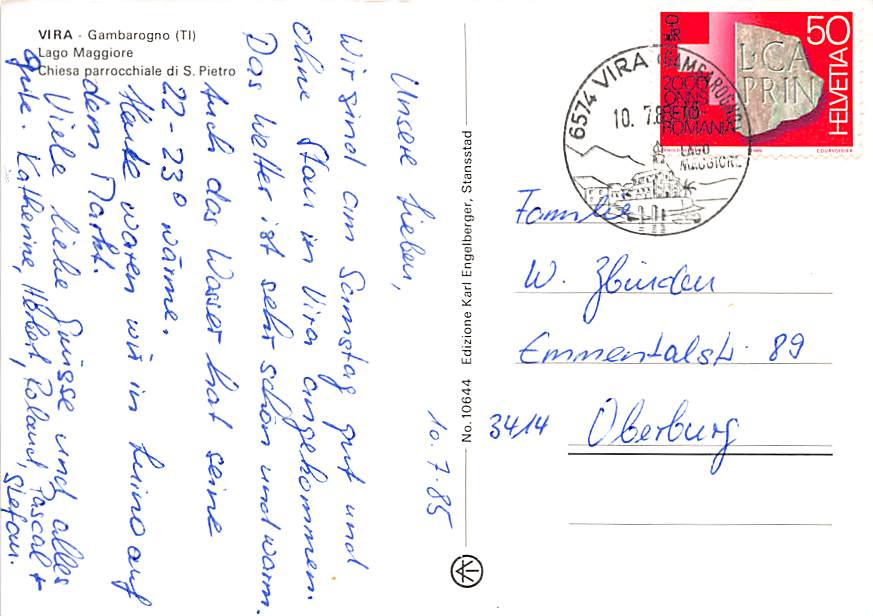 VIRA - Gambarogno (TI)
Lago Maggiore
Chiesa parrocchiale di S. Pietro
10.7.85
Unsere Lieben,
Wir sind am Samstag gut und
ohne Stau in Vira angekommen.
Das Wetter ist sehr schön und warm.
Auch das Wasser hat seine
22-23° wärme.
Heute waren wir in Luino auf
dem Markt.
Viele liebe Grüsse und alles
gute. Katherine, Herbert, Roland, Pascal +
Stefan.
No. 10644 Edizione Karl Engelberger, Stansstad
6574 VIRA (GAMBAROGNO)
10.7.8
LAGO
MAGGIORE
50
HELVETIA
L·CA
PRIN
2000
ONNS
RETO
ROMANIA
COURVOISIER
Familie
W. Zbinden
Emmentalstr. 89
3414 Oberburg